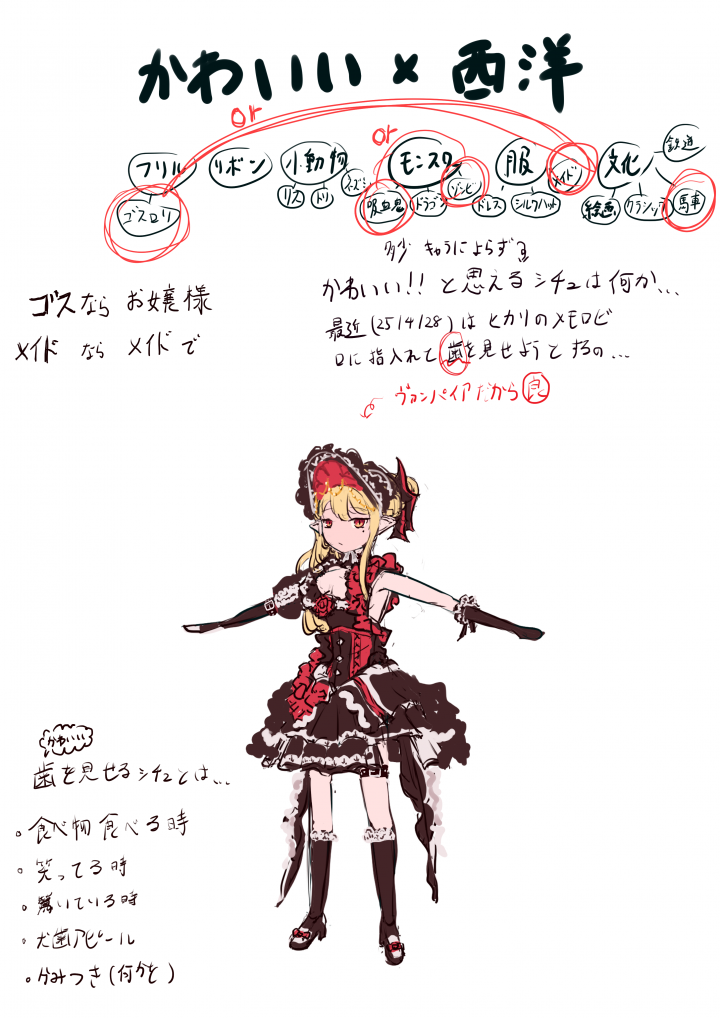 かわいい × 西洋
or
or
フリル リボン 小動物 モンスター 服 文化
鉄道
ゴスロリ リス トリ ネズミ 吸血鬼 ドラゴン ゾンビ ドレス シルクハット メイド 絵画 クラシック 馬車
ゴスなら お嬢様
メイド なら メイドで
多少 キャラによらず
かわいい!! と思えるシチュは何か...
最近 (25/4/28) は ヒカリのメモロビ
口に指入れて 歯を見せようとするの...
ヴァンパイアだから 良
かわいい
歯を見せるシチュとは...
食べ物食べる時
笑ってる時
驚いている時
犬歯アピール
かみつき (何かを)